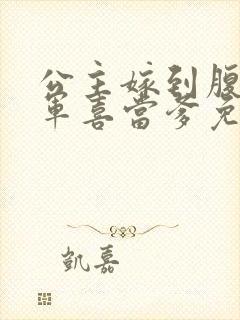 公主嫁到腹
军喜当爹免
凯嘉